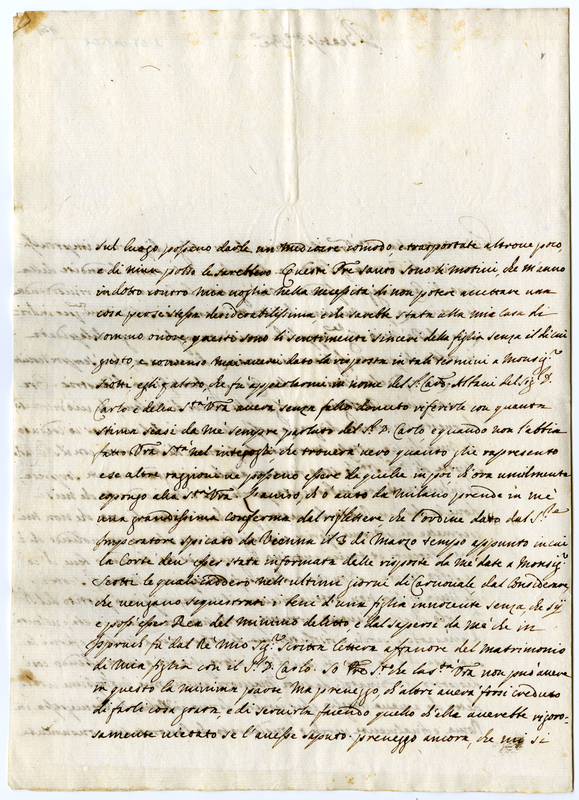 sul luogo possono darle un mediocre comodo, e trasportate altrove poco,
e di niun polso le sarebbero. Questi Pre santo sono li motivi, che m'anno
indotto contro mia voglia nella necessità di non potere accettare una
cosa per se stessa desiderabilissima e che sarebbe stata alla mia casa di
sommo onore, questi sono li sentimenti sinceri della figlia senza il di cui
gusto, e consenso
dato la risposta in tali termini a Monsig.r
Scotti egli q altro, che fu a parlarmi in nome del S. Card. Albani del Sig.r D.
Carlo e della S.tà V.ra averà senza fallo dovuto riferirle con quanta
stima siasi da me sempre parlato del S.r D. Carlo e quando non l'abbia
fatto V.ra S.tà nel interroghi che troverà vero quanto gli rapresento
e se altre raggioni ne possono essere da quelle in poi d'ora umilmente
espongo alla S.tà V.ra
auto da Milano prende in me
una grandissima conferma dal riflettere che l'ordine dato dal S.r
Imperatore spicato da Vienna il 3 di Marzo tempo appunto in cui
la Corte deve esser stata informata delle risposte da me date a Monsig.r
Scotti le quali
nell'ultimi giorni di Carnovale dal
che vengano sequestrati i beni d'una figlia innocente senza, che si
possi esser Rea del minimo delitto e dal sapersi da me che in
fù dal Rè Mio Sig.r scritta lettera a favore del matrimonio
di mia figlia con il S.r D. Carlo. Sò Pre S.to che la S.tà V.ra non può avere
in questo la minima parte ma preveggo, ch'altri averà forsi creduto
di farli cosa grata, e di servirla facendo quello ch'ella averebbe rigoro-
samente vietato se l'avesse saputo. preveggo ancora, che mi si